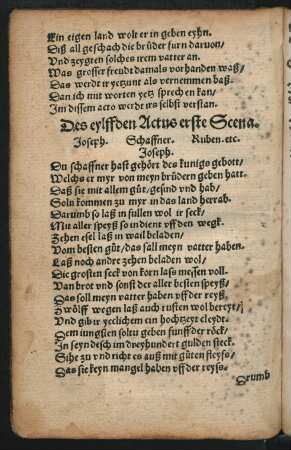 Ein eigen land wolt er in geben eyhn.
Diß all geschach die brüder furn daruon/
Vnd zeygten solches irem vatter an.
Was grosser freudt damals vorhanden waß/
Das werdt ir yetzunt als vernemmen baß.
Dan ich mit worten yetz sprechen kan/
Im dissem acto werdt irs selbst verstan.
Des eylfften Actus erste Scena.
Joseph. Schaffner. Ruben. etc.
Joseph.
Du schaffner hast gehört des kunigs gebott/
Welchs er myr von meyn brüdern geben hatt.
Daß sie mit allem gůt/ gesind vnd hab/
Soln kommen zu myr in das land herrab.
Darumb so laß in fullen wol ir seck/
Mit aller speyß so in dient vff den wegk.
Zehen esel laß in wail beladen/
Vom besten gůt/ das sall meyn vatter haben.
Laß noch andre zehen beladen wol/
Die grosten seck von korn lasz messen voll.
Van brot vnd sonst der aller besten speyß/
Das soll meyn vatter haben vff der reyß.
Zwölff wegen laß auch rusten wol bereyt/
Vnd gib ir yeclichem ein hochtzeyt cleydt.
Dem iungsten soltu geben funff der röck/
An seyn desch im dreyhundert gulden steck.
Sihe zu vnd richt es auß mit gůten fleyss/
Das sie keyn mangel haben vff der reyss.
Drumb